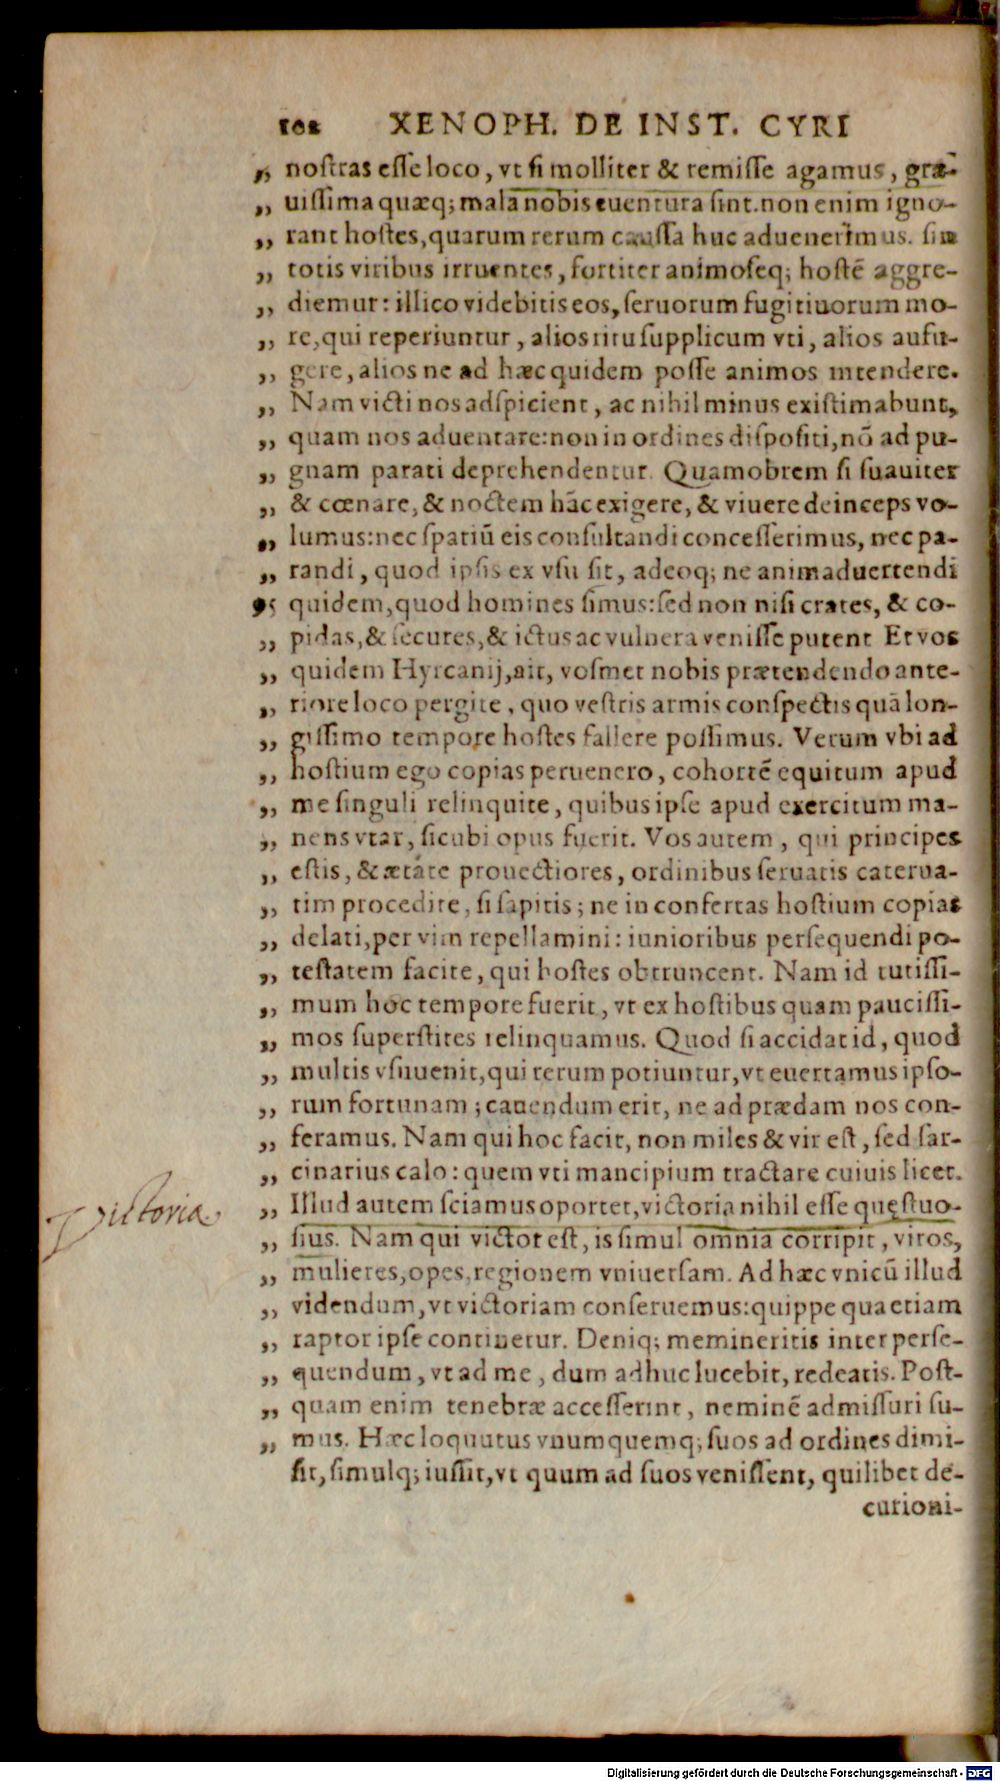 102 XENOPH. DE INST. CYRI
„ nostras esse loco, vt si molliter & remisse agamus, gra-
„ uissima quæq; mala nobis euentura sint. non enim igno-
„ rant hostes, quarum rerum caussa huc aduenerimus. sin
„ totis viribus irruentes, fortiter animoseq; hostē aggre-
„ diemur: illico videbitis eos, seruorum fugitiuorum mo-
„ re, qui reperiuntur, alios ritu supplicum vti, alios aufu-
„ gere, alios ne ad hæc quidem posse animos intendere.
„ Nam victi nos adspicient, ac nihil minus existimabunt,
„ quam nos aduentare: non in ordines dispositi, nō ad pu-
„ gnam parati deprehendentur. Quamobrem si suauiter
„ & cœnare, & noctem hāc exigere, & viuere deinceps vo-
„ lumus: nec spatiū eis consultandi concesserimus, nec pa-
„ randi, quod ipsis ex vsu sit, adeoq; ne animaduertendi
„ quidem, quod homines simus: sed non nisi crates, & co-
„ pidas, & secures, & ictus ac vulnera venisse putent Et vos
„ quidem Hyrcanij, ait, vosmet nobis prætendendo ante-
„ riore loco pergite, quo vestris armis conspectis quā lon-
„ gissimo tempore hostes fallere possimus. Verum vbi ad
„ hostium ego copias peruenero, cohortē equitum apud
„ me singuli relinquite, quibus ipse apud exercitum ma-
„ nens vtar, sicubi opus fuerit. Vos autem, qui principes
„ estis, & ætate prouectiores, ordinibus seruatis caterua-
„ tim procedite, si sapitis; ne in confertas hostium copias
„ delati, per vim repellamini: iunioribus persequendi po-
„ testatem facite, qui hostes obtruncent. Nam id tutissi-
„ mum hoc tempore fuerit, vt ex hostibus quam paucissi-
„ mos superstites relinquamus. Quod si accidat id, quod
„ multis vsuuenit, qui rerum potiuntur, vt euertamus ipso-
„ rum fortunam; cauendum erit, ne ad prædam nos con-
„ feramus. Nam qui hoc facit, non miles & vir est, sed sar-
„ cinarius calo: quem vti mancipium tractare cuiuis licet.
Victoria
„ Illud autem sciamus oportet, victoria nihil esse quęstuo-
„ sius. Nam qui victor est, is simul omnia corripit, viros,
„ mulieres, opes, regionem vniuersam. Ad hæc vnicū illud
„ videndum, vt victoriam conseruemus: quippe qua etiam
„ raptor ipse continetur. Deniq; memineritis inter perse-
„ quendum, vt ad me, dum adhuc lucebit, redeatis. Post-
„ quam enim tenebræ accesserint, neminē admissuri su-
„ mus. Hæc loquutus vnumquemq; suos ad ordines dimi-
sit, simulq; iussit, vt quum ad suos venissent, quilibet de-
curioni-
Digitalisierung gefördert durch die Deutsche Forschungsgemeinschaft - DFG